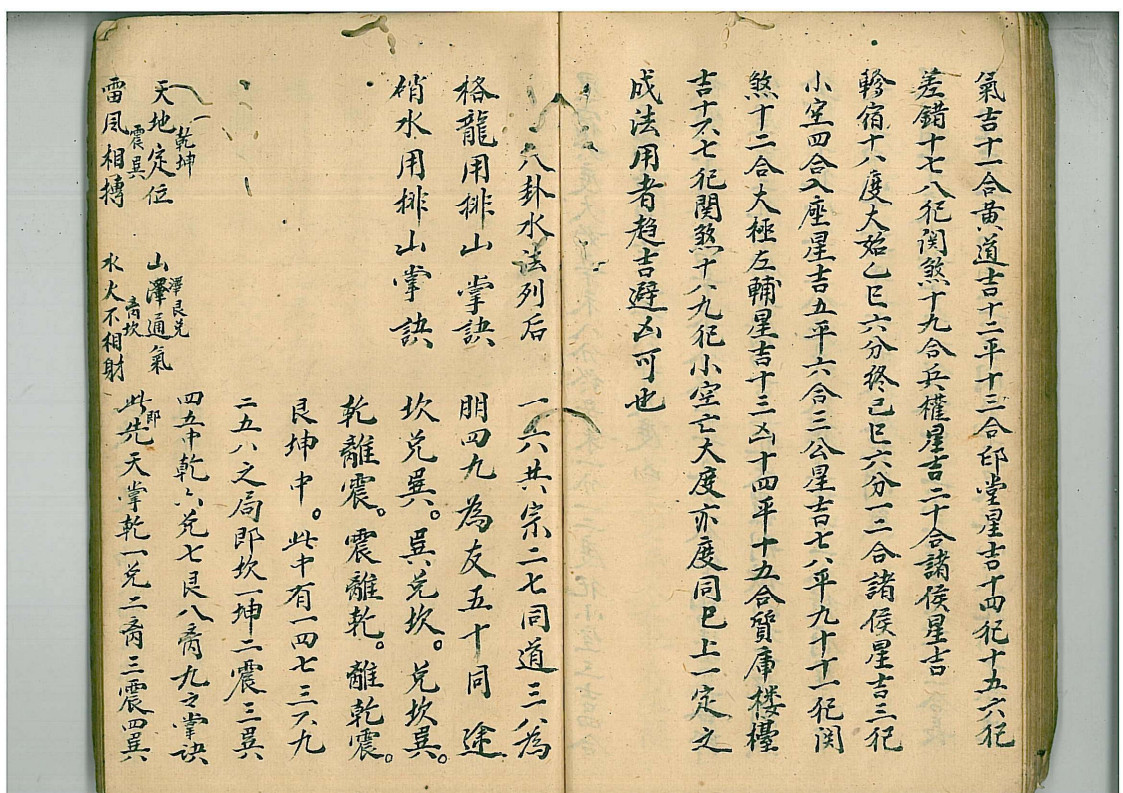 氣吉十一合黄道吉十二平十三合印堂星吉十四犯十五六犯
差錯十七八犯関煞十九合兵權星吉二十合諸侯星吉
軫宿十八度大始乙巳六分終己巳六分一二合諸侯星吉三犯
小空四合入座星吉五平六合三公星吉七八平九十十一犯関
煞十二合大極左輔星吉十三凶十四平十五合質庫楼檯
吉十六七犯関煞十八九犯小空亡大度亦度同已上一定之
成法用者趋吉避凶可也
八卦水法列后
格龍用排山掌訣
消水用排山掌訣
天地定位
乾坤
雷風相搏
震巽
山澤通氣
澤艮兑
水火不相射
离坎
一六共宗二七同道三八為
朋四九為友五十同途
坎兑巽。巽兑坎。兑坎巽。
乾離震。震離乾。離乾震。
艮坤中。此中有一四七三六九
二五八之局即坎一坤二震三巽
四五中乾六兑七艮八离九之掌诀
此即先天掌乾一兑二离三震四巽